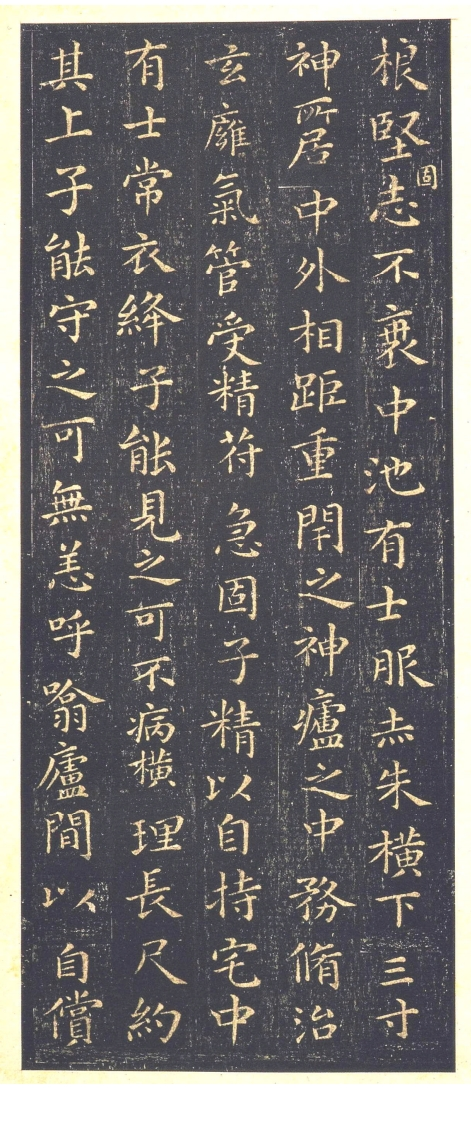 根堅固志不衰中池有士服赤朱橫下三寸
神所居中外相距重閇之神廬之中務脩治
玄廱氣管受精苻急固子精以自持宅中
有士常衣絳子能見之可不病橫理長尺約
其上子能守之可無恙呼噏廬間以自償